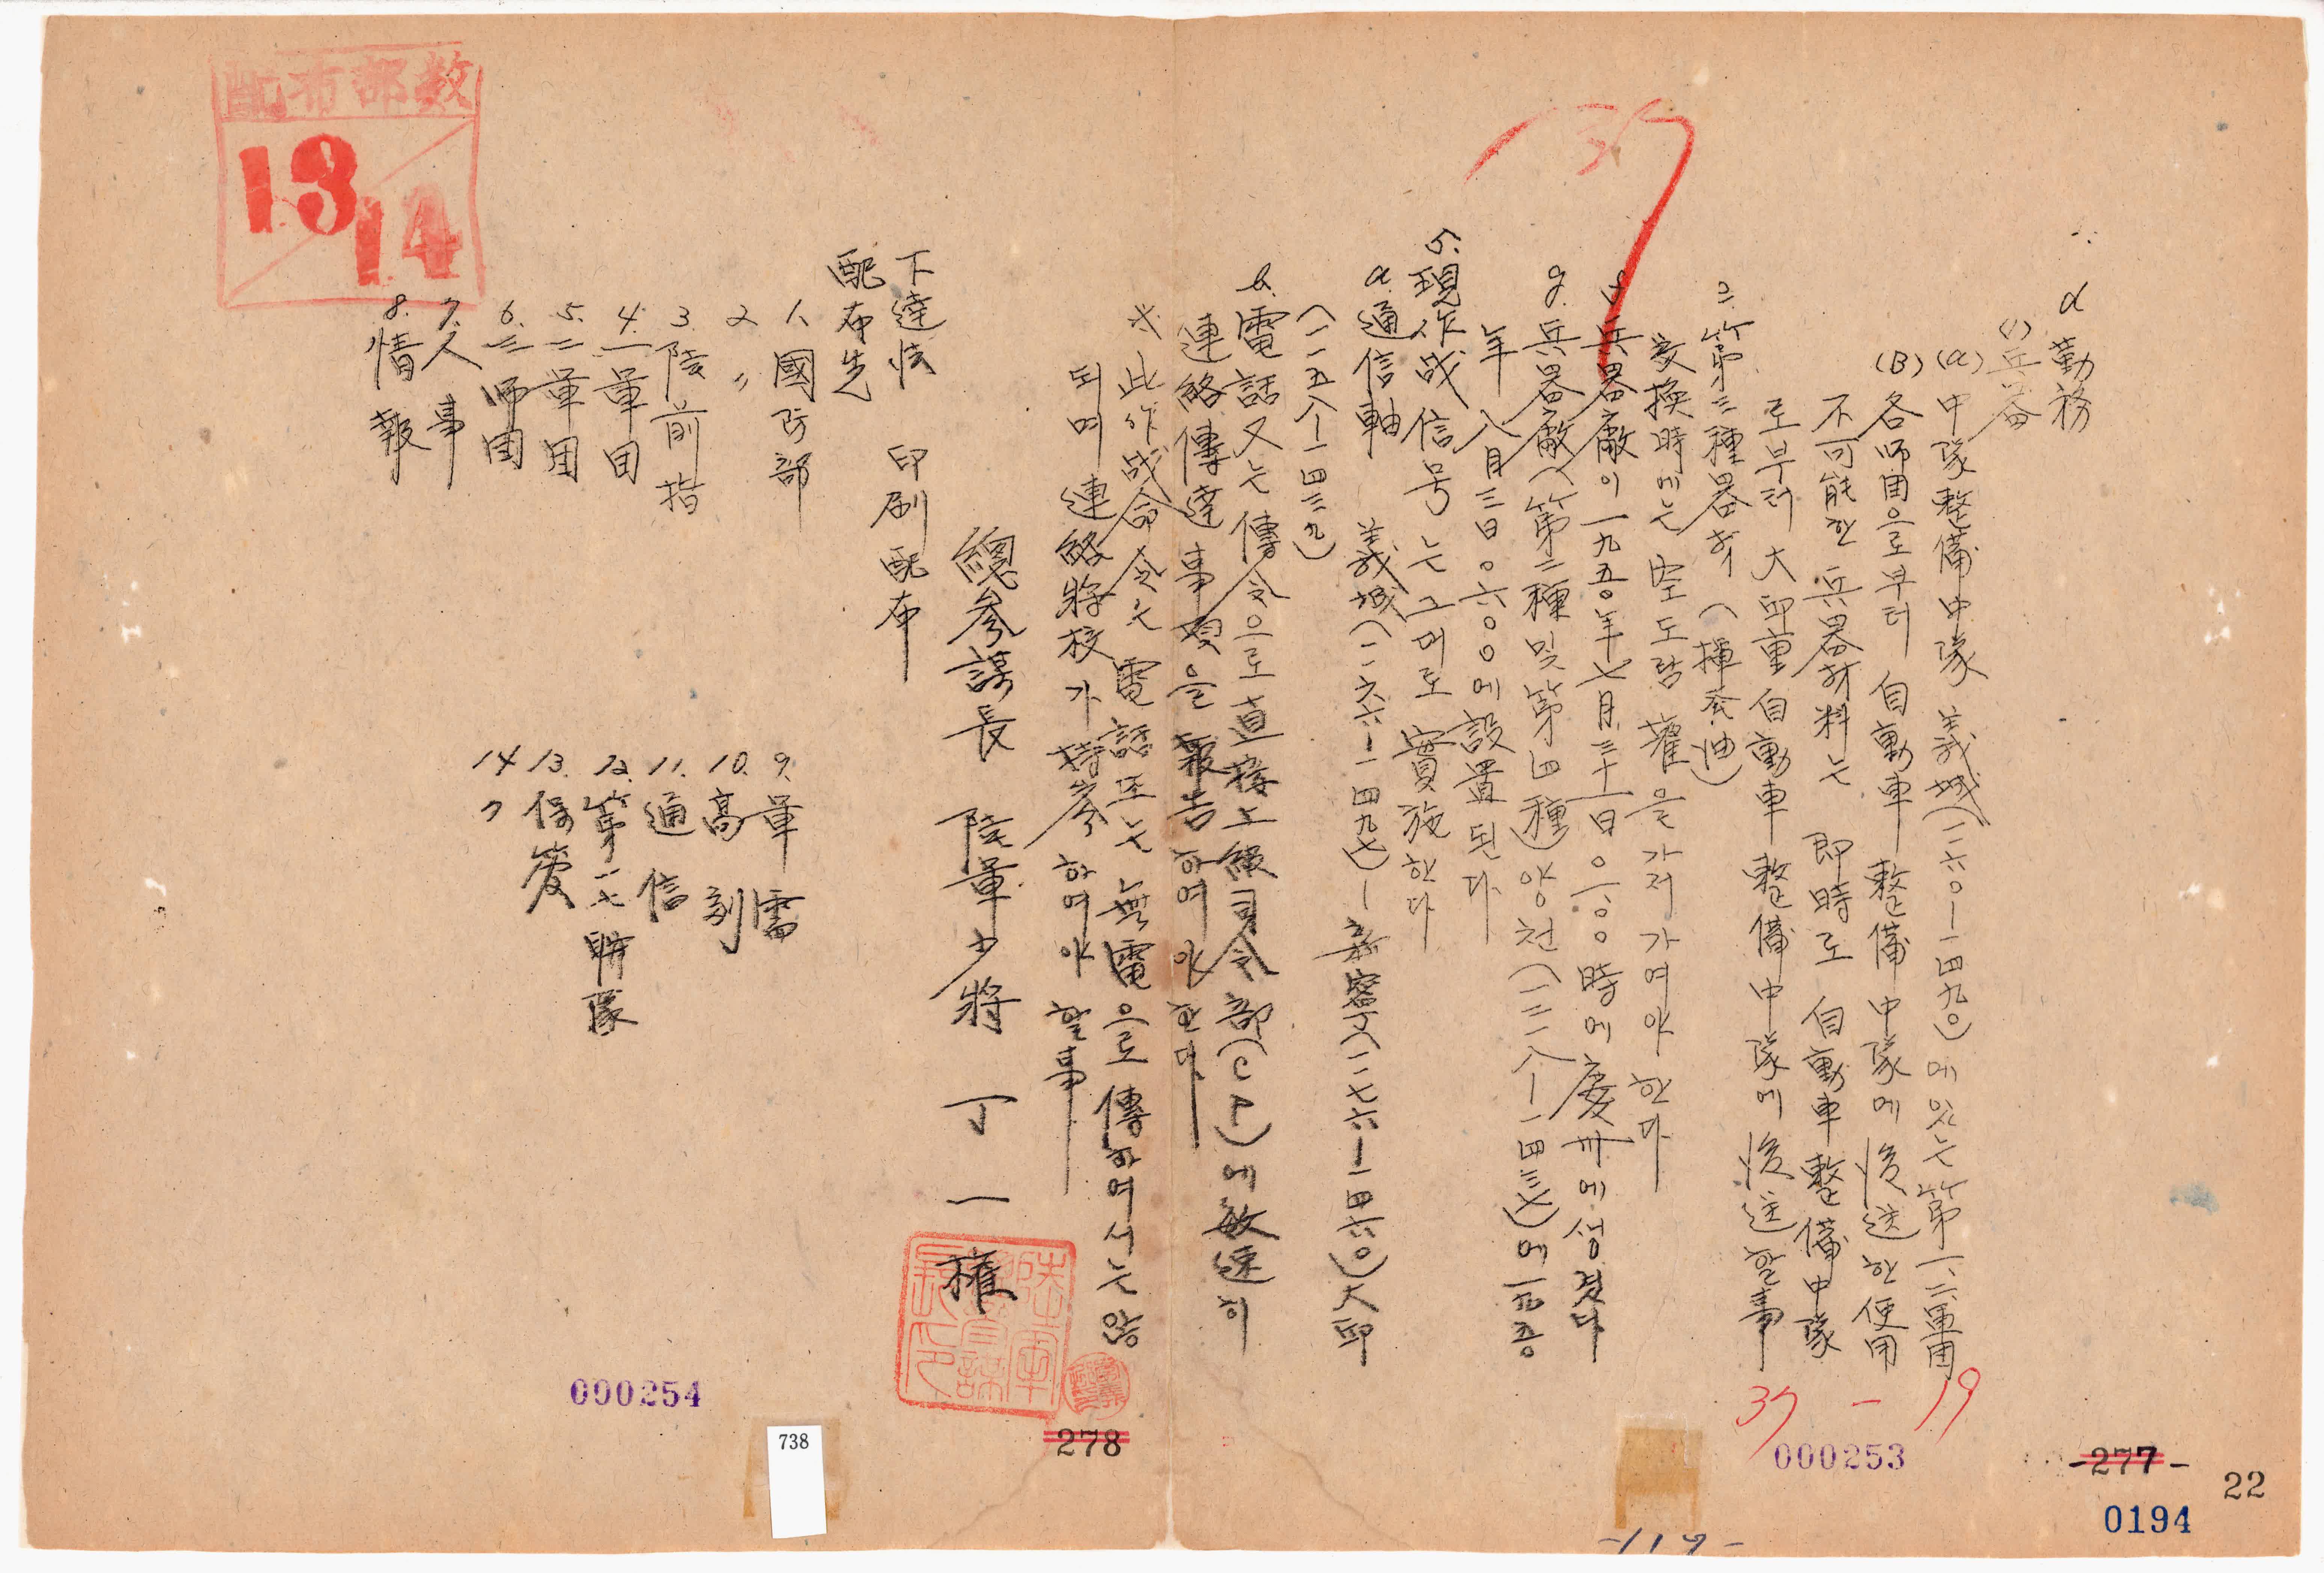 d 勤務
(1) 兵器
(a) 中隊整備中隊 義城(一二六〇—一四九〇)에 있는 第一、二軍団
(B) 各師団으로부터 自動車 整備中隊에 後送한 使用
不可能한 兵器材料는 即時로 自動車整備中隊
로부터 大邱重自動車整備中隊에 後送할 事
2. 第三種器材 (揮発油)
交換時에는 空도람 罐을 가저 가여야 한다
f 兵器廠이 一九五〇年七月三十一日 〇六〇〇時에 慶州에 생겼다
g. 兵器廠(第二種 및 第四種) 양천(一三二八—一四三七)에 一九五〇
年 八月三日 〇六〇〇에 設置된다
5. 現作战信号는 그대로 實施한다
a. 通信軸 義城(一二六六—一四九七)—新寧(一二七六—一四六〇)大邱
(一一五八—一四三九)
b. 電話又는 傳令으로 直接上級司令部(CP)에 敏速히
連絡傳達事項을 報告하여야 한다
此作战命令은 電話又는 無電으로 傳하여서는 않
되며 連絡將校가 持参하여야 할 事
總参謀長 陸軍少將 丁一權
下達法 印刷配布
配布先
1. 國防部
2. 〃
3. 陸前指
4. 一軍団
5. 二軍団
6. 三師団
7. 人事
8. 情報
9. 軍需
10. 高副
11. 通信
12. 第一七聯隊
13. 保管
14 〃
配布部数
13
14
37
37 - 19
000254
738
278
000253
-277-
22
0194
-119-